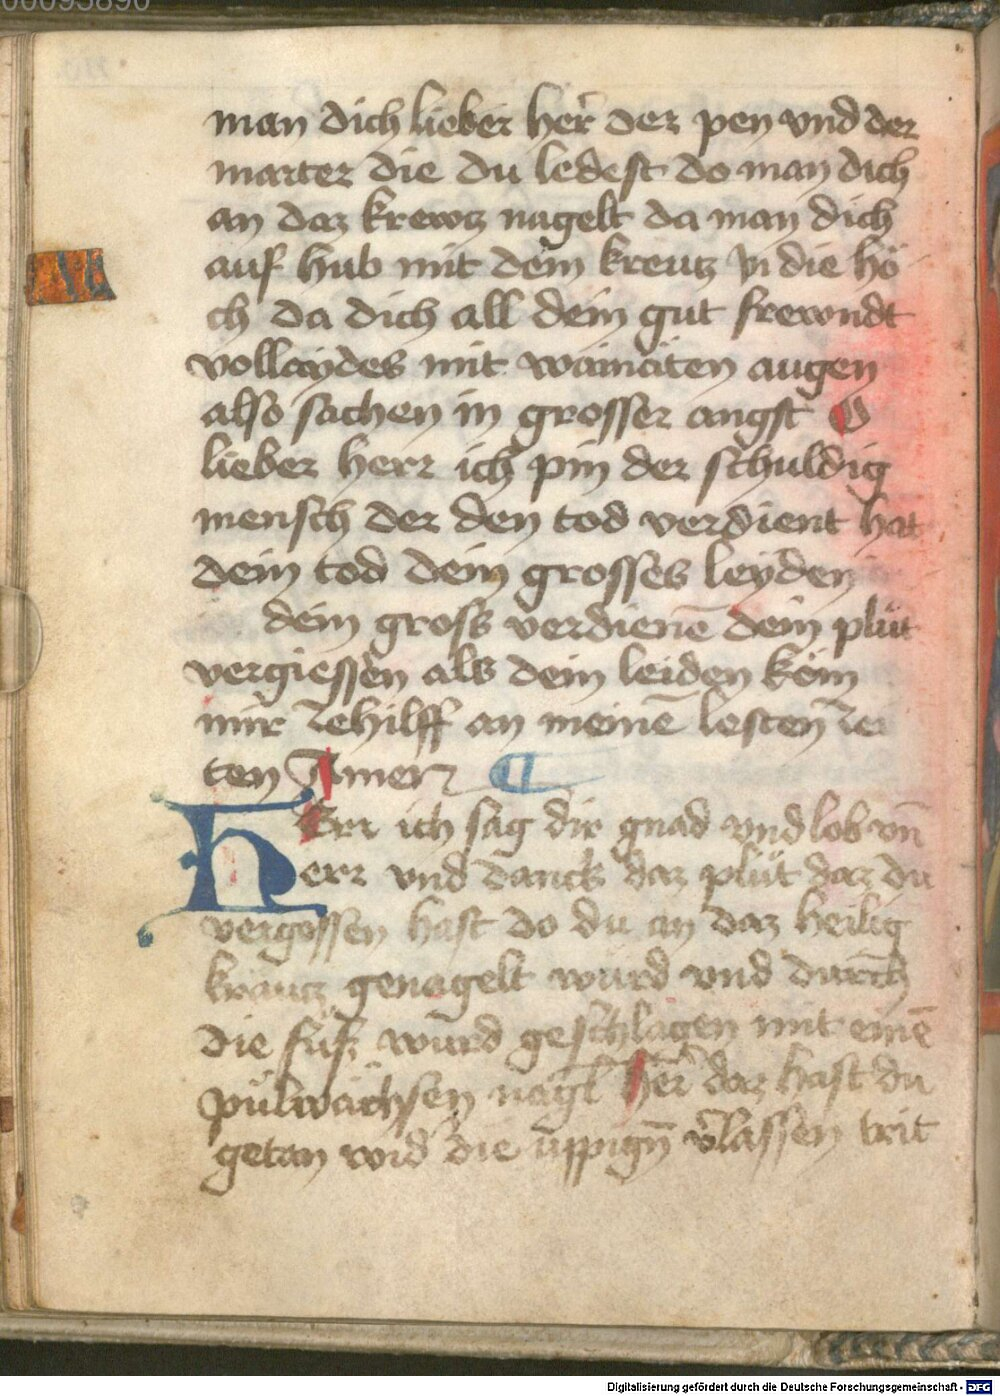 man dich lieber her̄ der pen vnd der
marter die du ledest do man dich
an daz krewtz nagelt da man dich
auf hub mit dem kreutz jn die hö
ch da dich all dein gut frewndt
vollaydes mit wainäten augen
also sachen in grosser angst O
lieber herr ich pin der schuldig
mensch der den tod verdient hat
dein tod dein grosses leyden
dein gross verdienē dein plüt
vergiessen als dein leiden köm
mir zehilff an meinē lesten zei
ten Amen ¶
HErr ich sag dir gnad vnd lob vn̄
err vnd danck daz plüt daz du
vergossen hast do du an daz heilig
kräutz genagelt würd vnd durch
die füß würd geschlagen mit einē
pülwächsen nagl her̄ daz hast du
getan wid̕ die üppign̄ v̕lassen trit
Digitalisierung gefördert durch die Deutsche Forschungsgemeinschaft - DFG